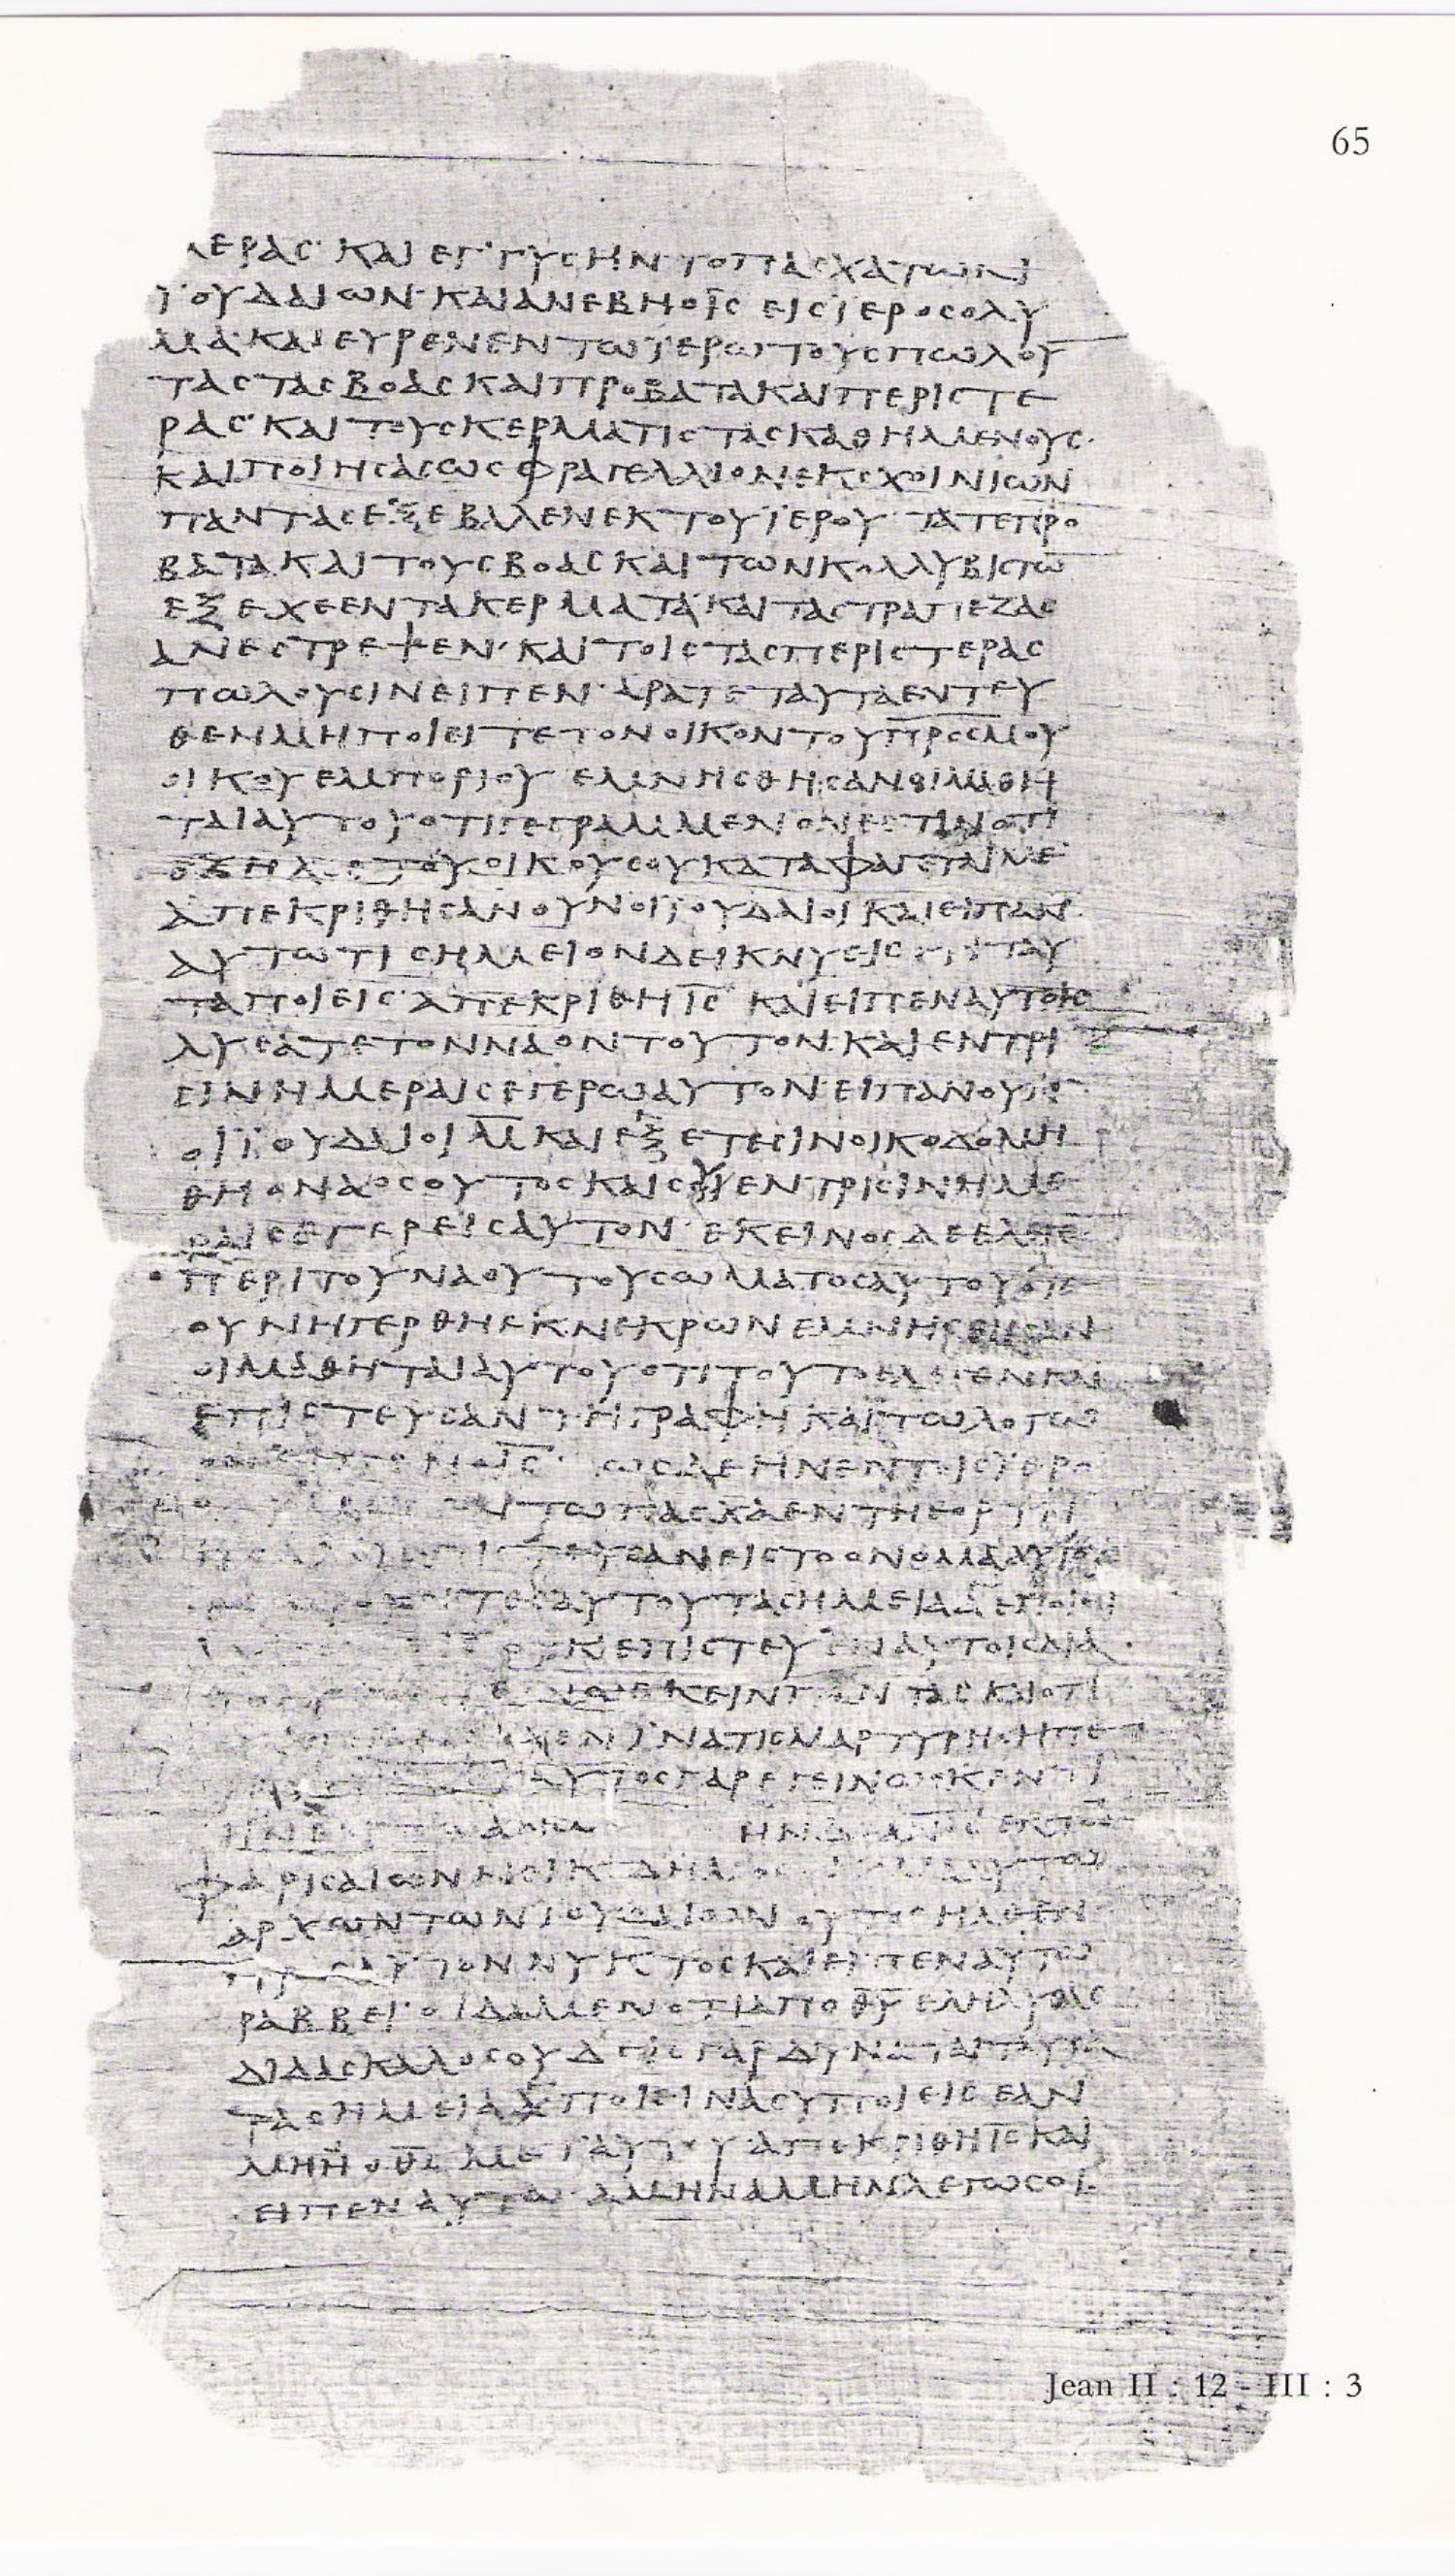 65
ΜΕΡΑC ΚΑΙ ΕΓΓΥC ΗΝ ΤΟ ΠΑCΧΑ ΤΩΝ
ΪΟΥΔΑΙΩΝ ΚΑΙ ΑΝΕΒΗ Ο ΙC ΕΙC ΪΕΡΟCΟΛΥ
ΜΑ ΚΑΙ ΕΥΡΕΝ ΕΝ ΤΩ ΪΕΡΩ ΤΟΥC ΠΩΛΟΥ
ΤΑC ΤΑC ΒΟΑC ΚΑΙ ΠΡΟΒΑΤΑ ΚΑΙ ΠΕΡΙCΤΕ
ΡΑC ΚΑΙ ΤΟΥC ΚΕΡΜΑΤΙCΤΑC ΚΑΘΗΜΕΝΟΥC
ΚΑΙ ΠΟΙΗCΑC ΩC ΦΡΑΓΕΛΛΙΟΝ ΕΚ CΧΟΙΝΙΩΝ
ΠΑΝΤΑC ΕΞΕΒΑΛΕΝ ΕΚ ΤΟΥ ΪΕΡΟΥ ΤΑ ΤΕ ΠΡΟ
ΒΑΤΑ ΚΑΙ ΤΟΥC ΒΟΑC ΚΑΙ ΤΩΝ ΚΟΛΛΥΒΙCΤΩ̅
ΕΞΕΧΕΕΝ ΤΑ ΚΕΡΜΑΤΑ ΚΑΙ ΤΑC ΤΡΑΠΕΖΑC
ΑΝΕCΤΡΕΨΕΝ ΚΑΙ ΤΟΙC ΤΑC ΠΕΡΙCΤΕΡΑC
ΠΩΛΟΥCΙΝ ΕΙΠΕΝ ΑΡΑΤΕ ΤΑΥΤΑ ΕΝΤΕΥ
ΘΕΝ ΜΗ ΠΟΙΕΙΤΕ ΤΟΝ ΟΙΚΟΝ ΤΟΥ ΠΡΟC ΜΟΥ
ΟΙΚΟΥ ΕΜΠΟΡΙΟΥ ΕΜΝΗCΘΗCΑΝ ΟΙ ΜΑΘΗ
ΤΑΙ ΑΥΤΟΥ ΟΤΙ ΓΕΓΡΑΜΜΕΝΟΝ ΕCΤΙΝ ΟΤΙ
Ο ΖΗΛΟC ΤΟΥ ΟΙΚΟΥ CΟΥ ΚΑΤΑΦΑΓΕΤΑΙ ΜΕ
ΑΠΕΚΡΙΘΗCΑΝ ΟΥΝ ΟΙ ΪΟΥΔΑΙΟΙ ΚΑΙ ΕΙΠΑΝ
ΑΥΤΩ ΤΙ CΗΜΕΙΟΝ ΔΕΙΚΝΥΕΙC ΤΑΥ
ΤΑ ΠΟΙΕΙC ΑΠΕΚΡΙΘΗ ΙC ΚΑΙ ΕΙΠΕΝ ΑΥΤΟΙC
ΛΥCΑΤΕ ΤΟΝ ΝΑΟΝ ΤΟΥΤΟΝ ΚΑΙ ΕΝ ΤΡΙ
CΙΝ ΗΜΕΡΑΙC ΕΓΕΡΩ ΑΥΤΟΝ ΕΙΠΑΝ ΟΥΝ
ΟΙ ΪΟΥΔΑΙΟΙ Μ̅ ΚΑΙ ΕΞ ΕΤΕCΙΝ ΟΙΚΟΔΟΜΗ
ΘΗ Ο ΝΑΟC ΟΥΤΟC ΚΑΙ CΥ ΕΝ ΤΡΙCΙΝ ΗΜΕ
ΡΑΙC ΕΓΕΡΕΙC ΑΥΤΟΝ ΕΚΕΙΝΟC ΔΕ ΕΛΕΓΕ
ΠΕΡΙ ΤΟΥ ΝΑΟΥ ΤΟΥ CΩΜΑΤΟC ΑΥΤΟΥ ΟΤΕ
ΟΥΝ ΗΓΕΡΘΗ ΕΚ ΝΕΚΡΩΝ ΕΜΝΗCΘΗCΑΝ
ΟΙ ΜΑΘΗΤΑΙ ΑΥΤΟΥ ΟΤΙ ΤΟΥΤΟ ΕΛΕΓΕΝ ΚΑΙ
ΕΠΙCΤΕΥCΑΝ ΤΗ ΓΡΑΦΗ ΚΑΙ ΤΩ ΛΟΓΩ
Ο ΙC ΩC ΔΕ ΗΝ ΕΝ ΤΟΙC ΪΕΡΟ
ΤΩ ΠΑCΧΑ ΕΝ ΤΗ ΕΟΡΤΗ
ΕΙC ΤΟ ΟΝΟΜΑ ΑΥΤΟΥ
ΑΥΤΟΥ ΤΑ CΗΜΕΙΑ Α ΕΠΟΙΕΙ
ΟΥΚ ΕΠΙCΤΕΥΕΝ ΑΥΤΟΙC ΔΙΑ
ΓΕΙΝΩCΚΕΙΝ ΠΑΝΤΑC ΚΑΙ ΟΤΙ
ΙΝΑ ΤΙC ΜΑΡΤΥΡΗCΗ ΠΕ
ΑΥΤΟC ΓΑΡ ΕΓΕΙΝΩCΚΕΝ ΤΙ
ΗΝ ΔΕ ΑΝΟC ΕΚ ΤΩ̅
ΦΑΡΙCΑΙΩΝ ΝΕΙΚΟΔΗΜΟC ΑΥΤΩ
ΑΡΧΩΝ ΤΩΝ ΪΟΥΔΑΙΩΝ ΟΥΤΟC ΗΛΘΕΝ
ΠΡΟC ΑΥΤΟΝ ΝΥΚΤΟC ΚΑΙ ΕΙΠΕΝ ΑΥΤΩ
ΡΑΒΒΕΙ ΟΙΔΑΜΕΝ ΟΤΙ ΑΠΟ Θ̅Υ̅ ΕΛΗΛΥΘΑC
ΔΙΔΑCΚΑΛΟC ΟΥΔΕΙC ΓΑΡ ΔΥΝΑΤΑΙ ΤΑΥΤΑ
ΤΑ CΗΜΕΙΑ Α ΠΟΙΕΙΝ Α CΥ ΠΟΙΕΙC ΕΑΝ
ΜΗ Η Ο Θ̅C̅ ΜΕΤ ΑΥΤΟΥ ΑΠΕΚΡΙΘΗ ΙC ΚΑΙ
ΕΙΠΕΝ ΑΥΤΩ ΑΜΗΝ ΑΜΗΝ ΛΕΓΩ CΟΙ
Jean II : 12 - III : 3